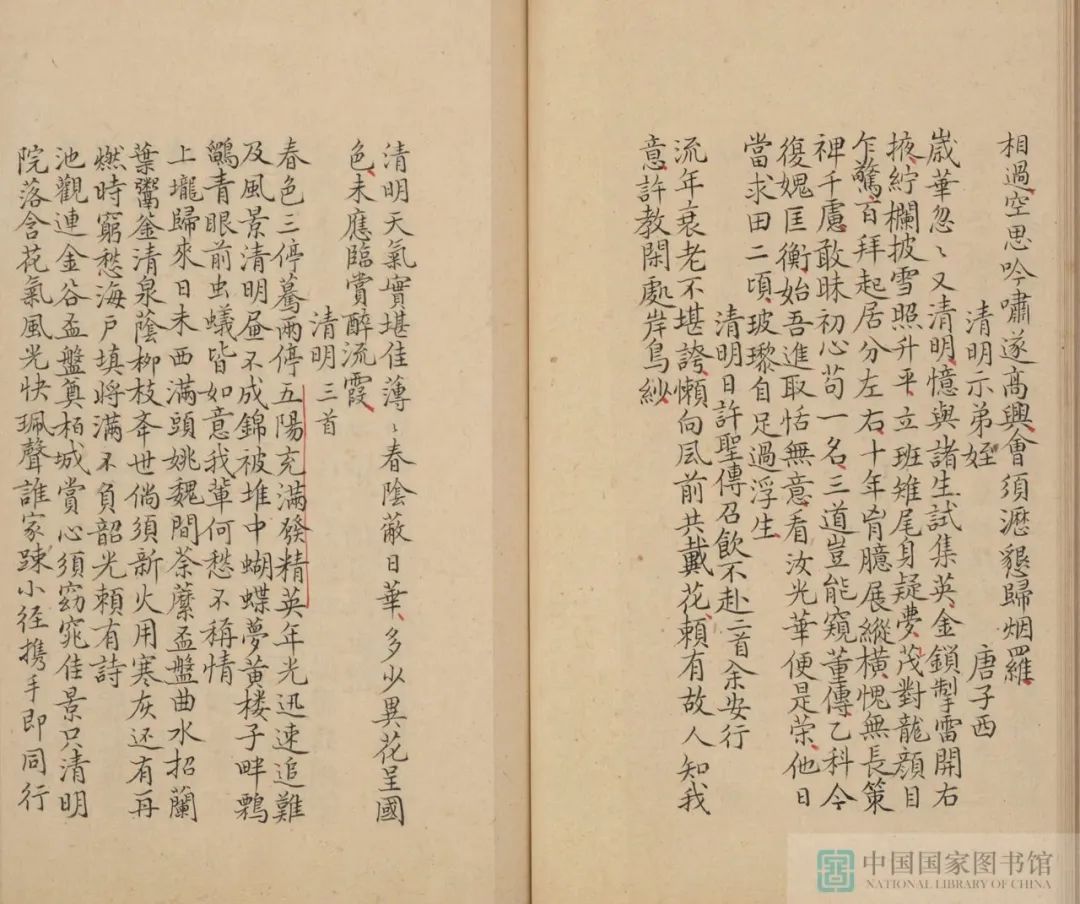 相過空思吟嘯遂高興會須瀝懇歸烟羅
清明示弟姪 唐子西
歲華忽〻又清明憶與諸生試集英金鎖掣雷開右
掖紵欄披雪照升平立班雉尾身疑夢茂對龍顔目
乍驚百拜起居分左右十年胷臆展縱橫愧無長策
裨千慮敢昧初心苟一名三道豈能窺董傳乙科今
復媿匡衡始吾進取恬無意看汝光華便是荣他日
當求田二頃玻瓈自足過浮生
清明日許聖傳召飲不赴二首余安行
流年衰老不堪誇懶向風前共戴花頼有故人知我
意許教閑處岸烏紗
清明天氣實堪佳薄〻春陰蔽日華多少異花呈國
色未應臨賞醉流霞
清明三首
春色三停驀兩停五陽充滿發精英年光迅速追難
及風景清明晝不成錦被堆中蝴蝶夢黄楼子畔鸎
鸝青眼前虫蟻皆如意我輩何愁不稱情
上壠歸來日未西滿頭姚魏間荼蘼盃盤曲水招蘭
葉鬻釜清泉蔭柳枝夲世倘須新火用寒灰还有再
燃時窮愁海户填將满不負韶光頼有詩
池觀連金谷盃盤奠栢城賞心須窈窕佳景只清明
院落含花氣風光快珮聲誰家踈小径携手即同行
中国国家图书馆
NATIONAL LIBRARY OF CHINA